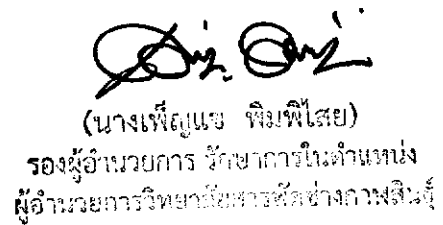 (นางเพ็ญแข พิมพิไสย)
รองผู้อำนวยการ รักษาการในตำแหน่ง
ผู้อำนวยการวิทยาลัยสารพัดช่างกาฬสินธุ์